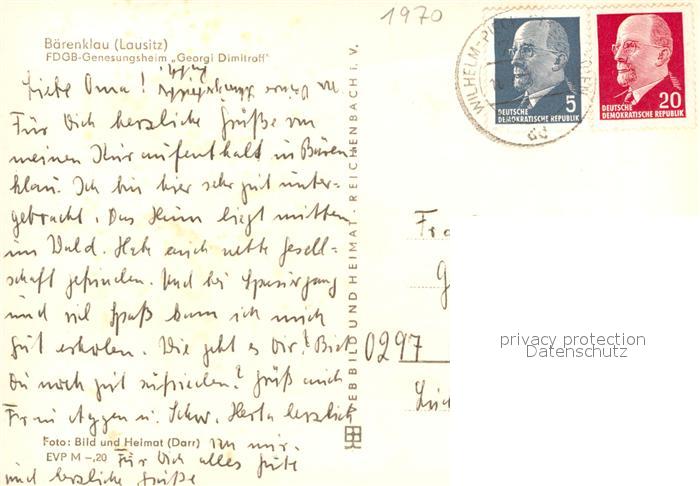 1970
Bärenklau (Lausitz)
FDGB-Genesungsheim „Georgi Dimitroff"
Liebe Oma!
Für Dich herzliche Grüße von
meinem Kuraufenthalt in Bären
klau. Ich bin hier sehr gut unter-
gebracht. Das Heim liegt mitten
im Wald. Habe auch nette Gesell-
schaft gefunden. Und bei Spaziergang
und viel Spaß kann ich mich
gut erholen. Wie geht es Dir? Bist
Du noch gut zufrieden? Grüß auch
Frau u. Schw. Herta herzlich
von mir.
Für Dich alles Gute
und herzliche Grüße
Foto: Bild und Heimat (Darr)
EVP M –,20
VEB BILD UND HEIMAT · REICHENBACH i. V.
WILHELM-PI
5
DEUTSCHE
DEMOKRATISCHE REPUBLIK
20
DEUTSCHE
DEMOKRATISCHE REPUBLIK
Fra
G
0297
privacy protection
Datenschutz